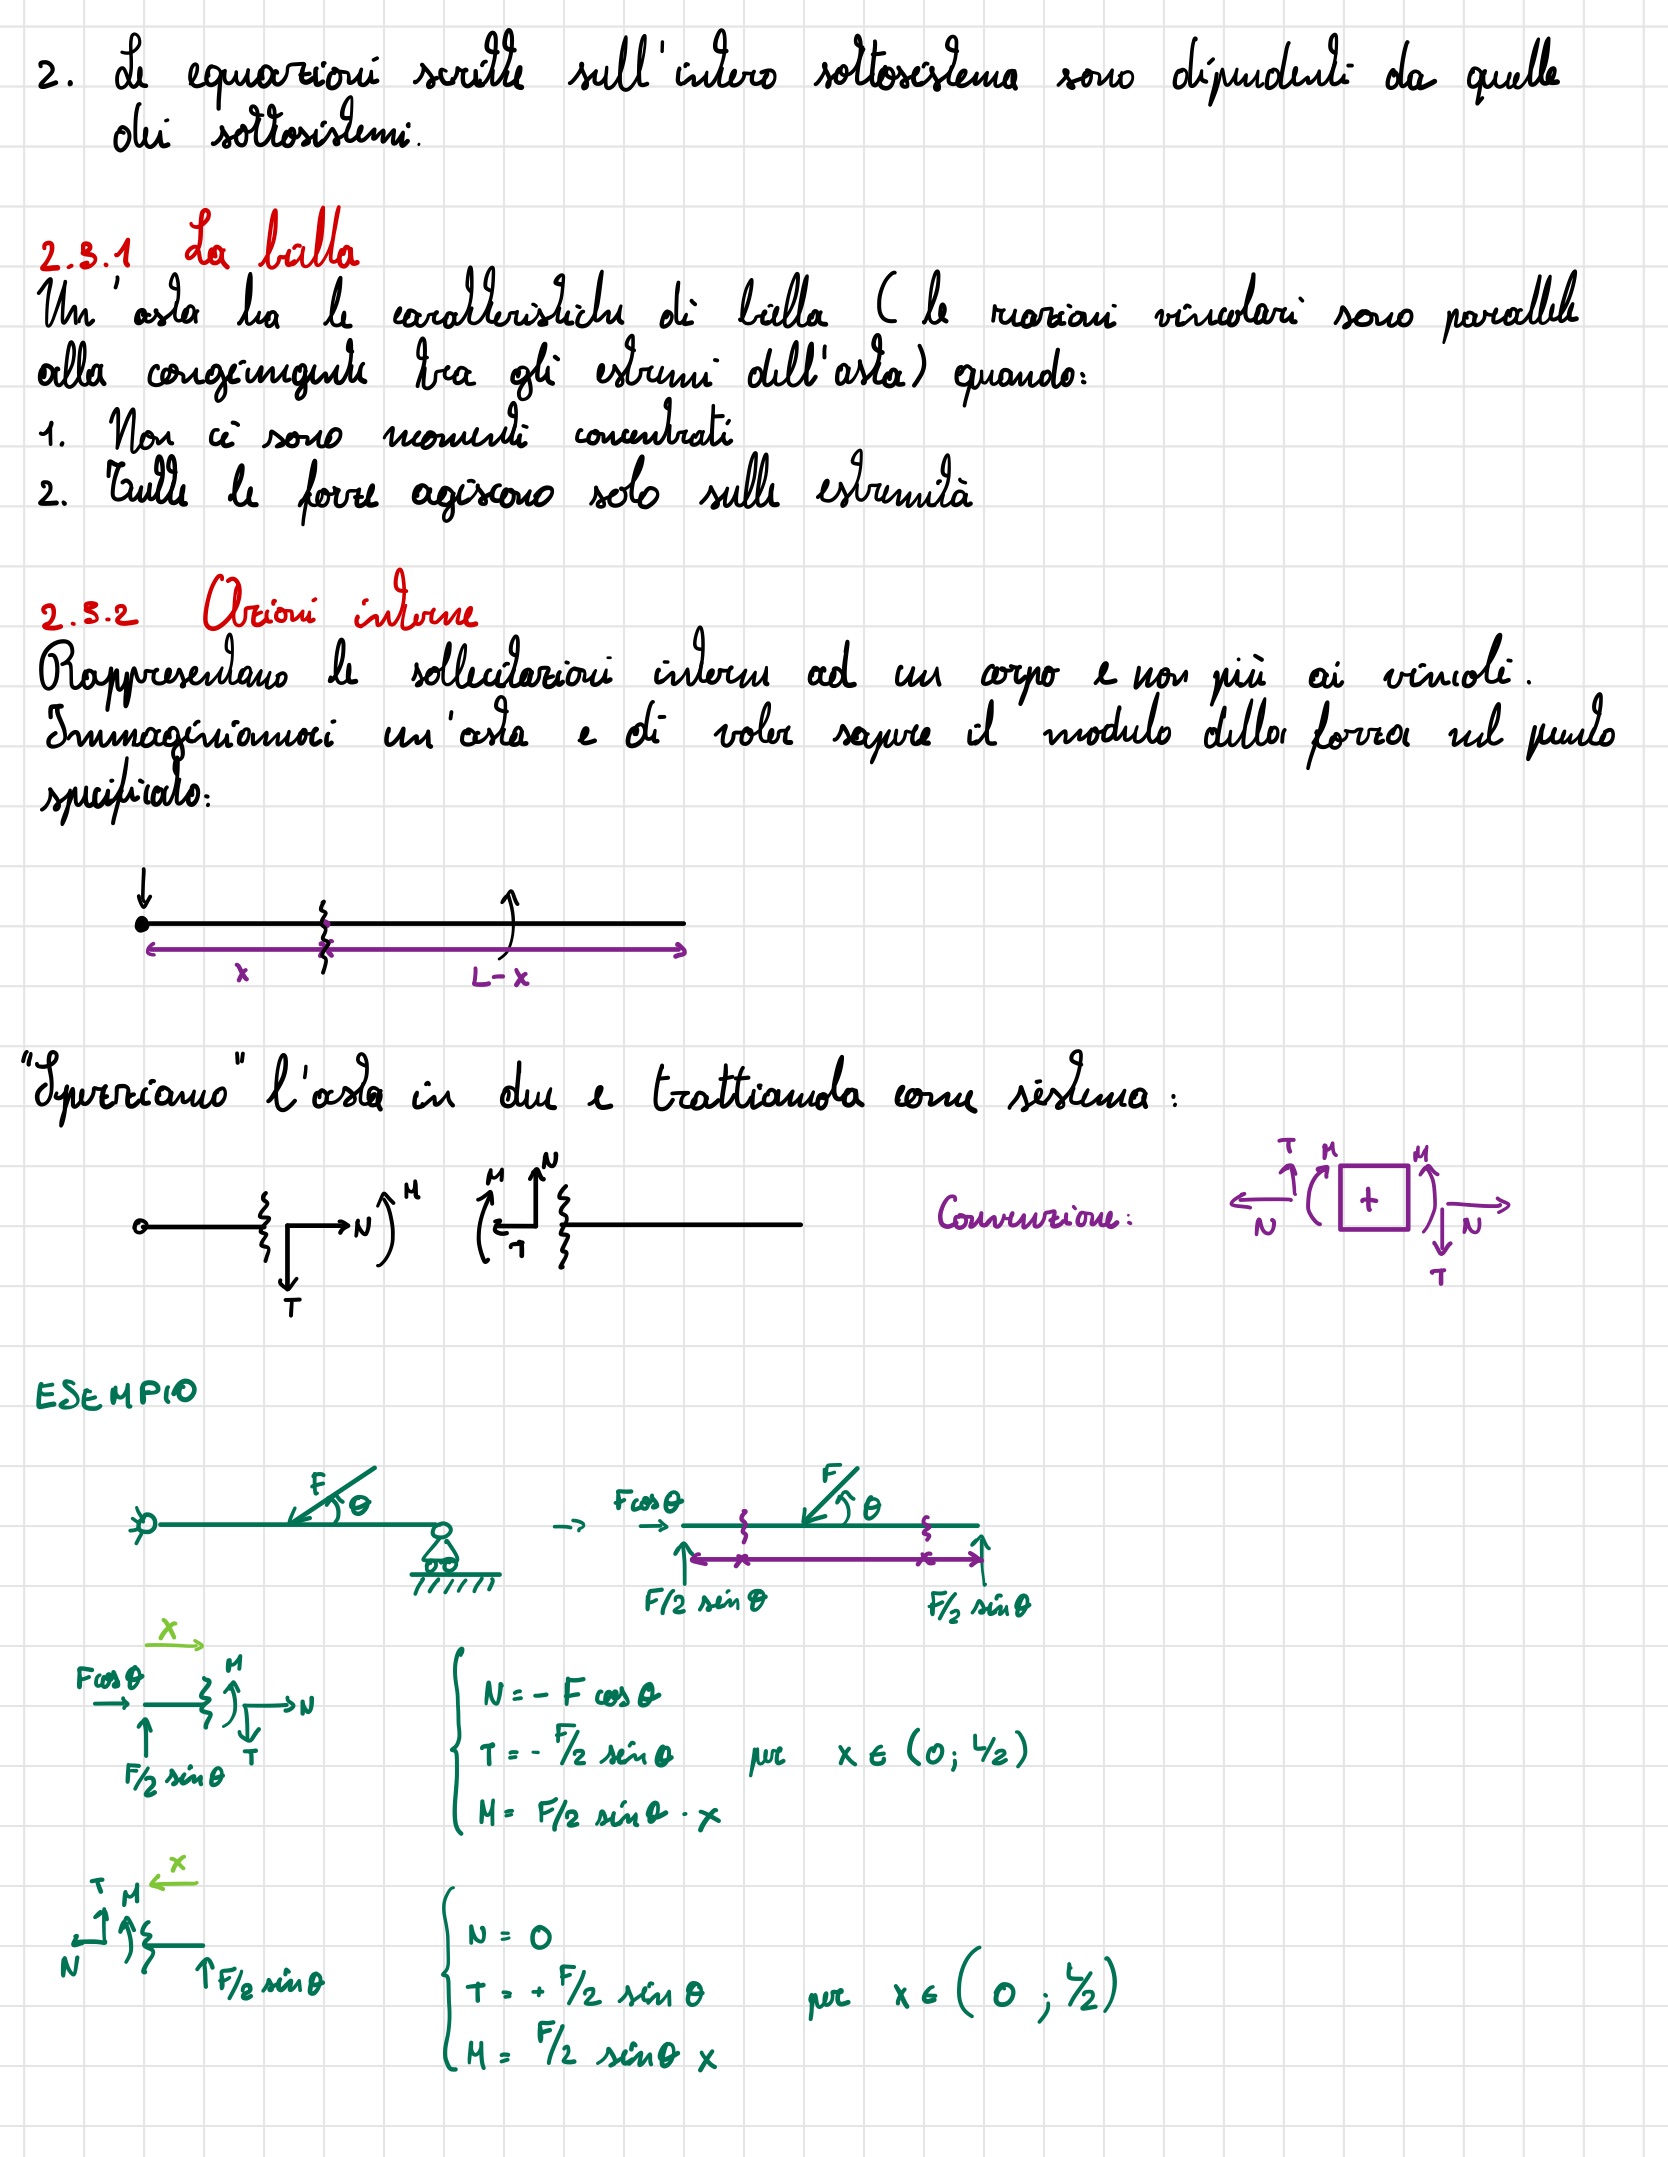 2. Le equazioni scritte sull'intero sottosistema sono dipendenti da quelle
dei sottosistemi.
2.3.1 La biella
Un'asta ha le caratteristiche di biella (le reazioni vincolari sono parallele
alla congiungente tra gli estremi dell'asta) quando:
1. Non ci sono momenti concentrati
2. Tutte le forze agiscono solo sulle estremità
2.3.2 Azioni interne
Rappresentano le sollecitazioni interne ad un corpo e non più ai vincoli.
Immaginiamoci un'asta e di voler sapere il modulo della forza nel punto
specificato:
x L-x
"Spezziamo" l'asta in due e trattiamola come sistema:
N M T
M N T
Convenzione: T M + M N N T
ESEMPIO
F θ
Fcosθ F θ
F/2 sinθ F/2 sinθ
x
Fcosθ M N
T
F/2 sinθ
N = - F cosθ
T = - F/2 sinθ per x ∈ (0; L/2)
M = F/2 sinθ · x
x
T M
N
F/2 sinθ
N = 0
T = + F/2 sinθ per x ∈ (0; L/2)
M = F/2 sinθ x